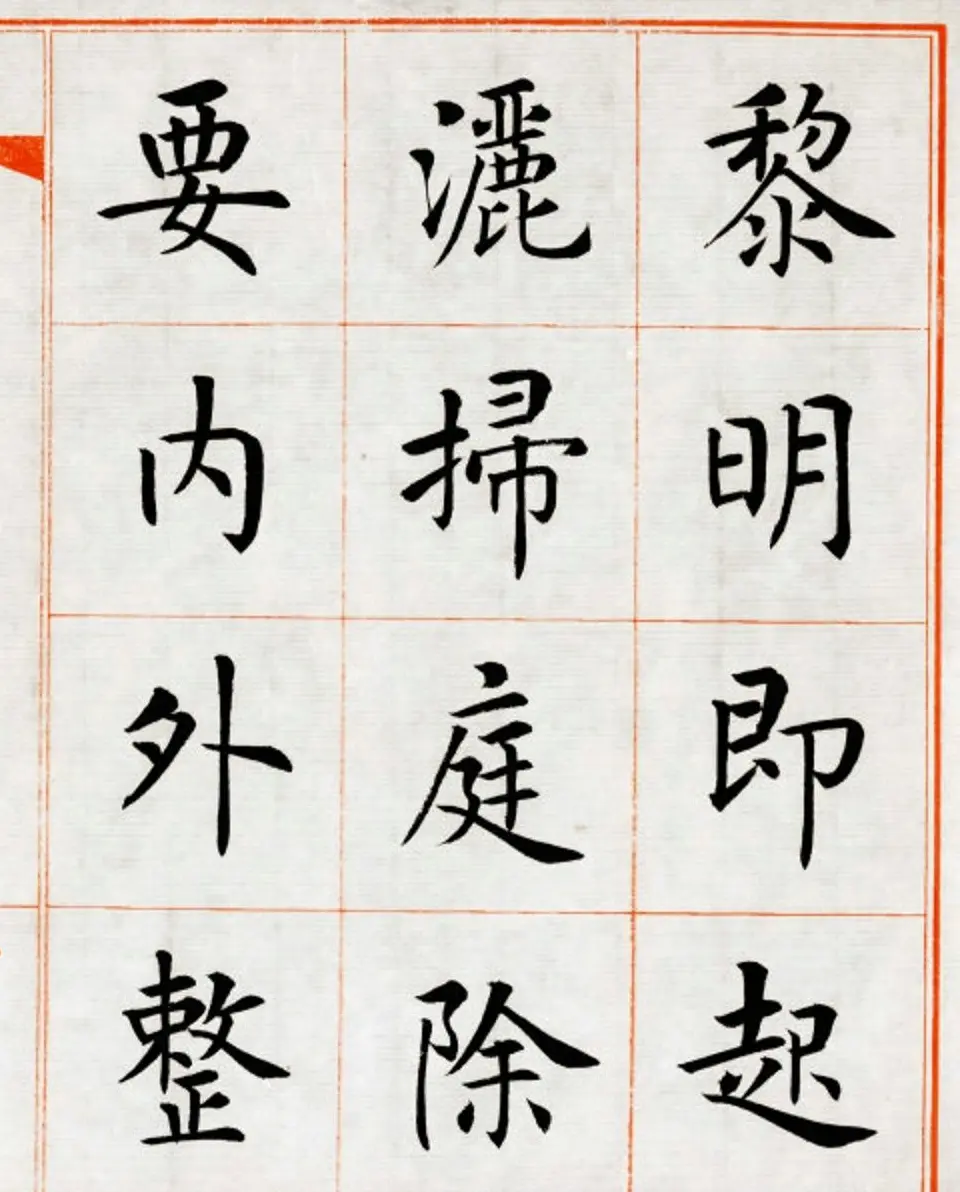 黎明即起
灑掃庭除
要内外整